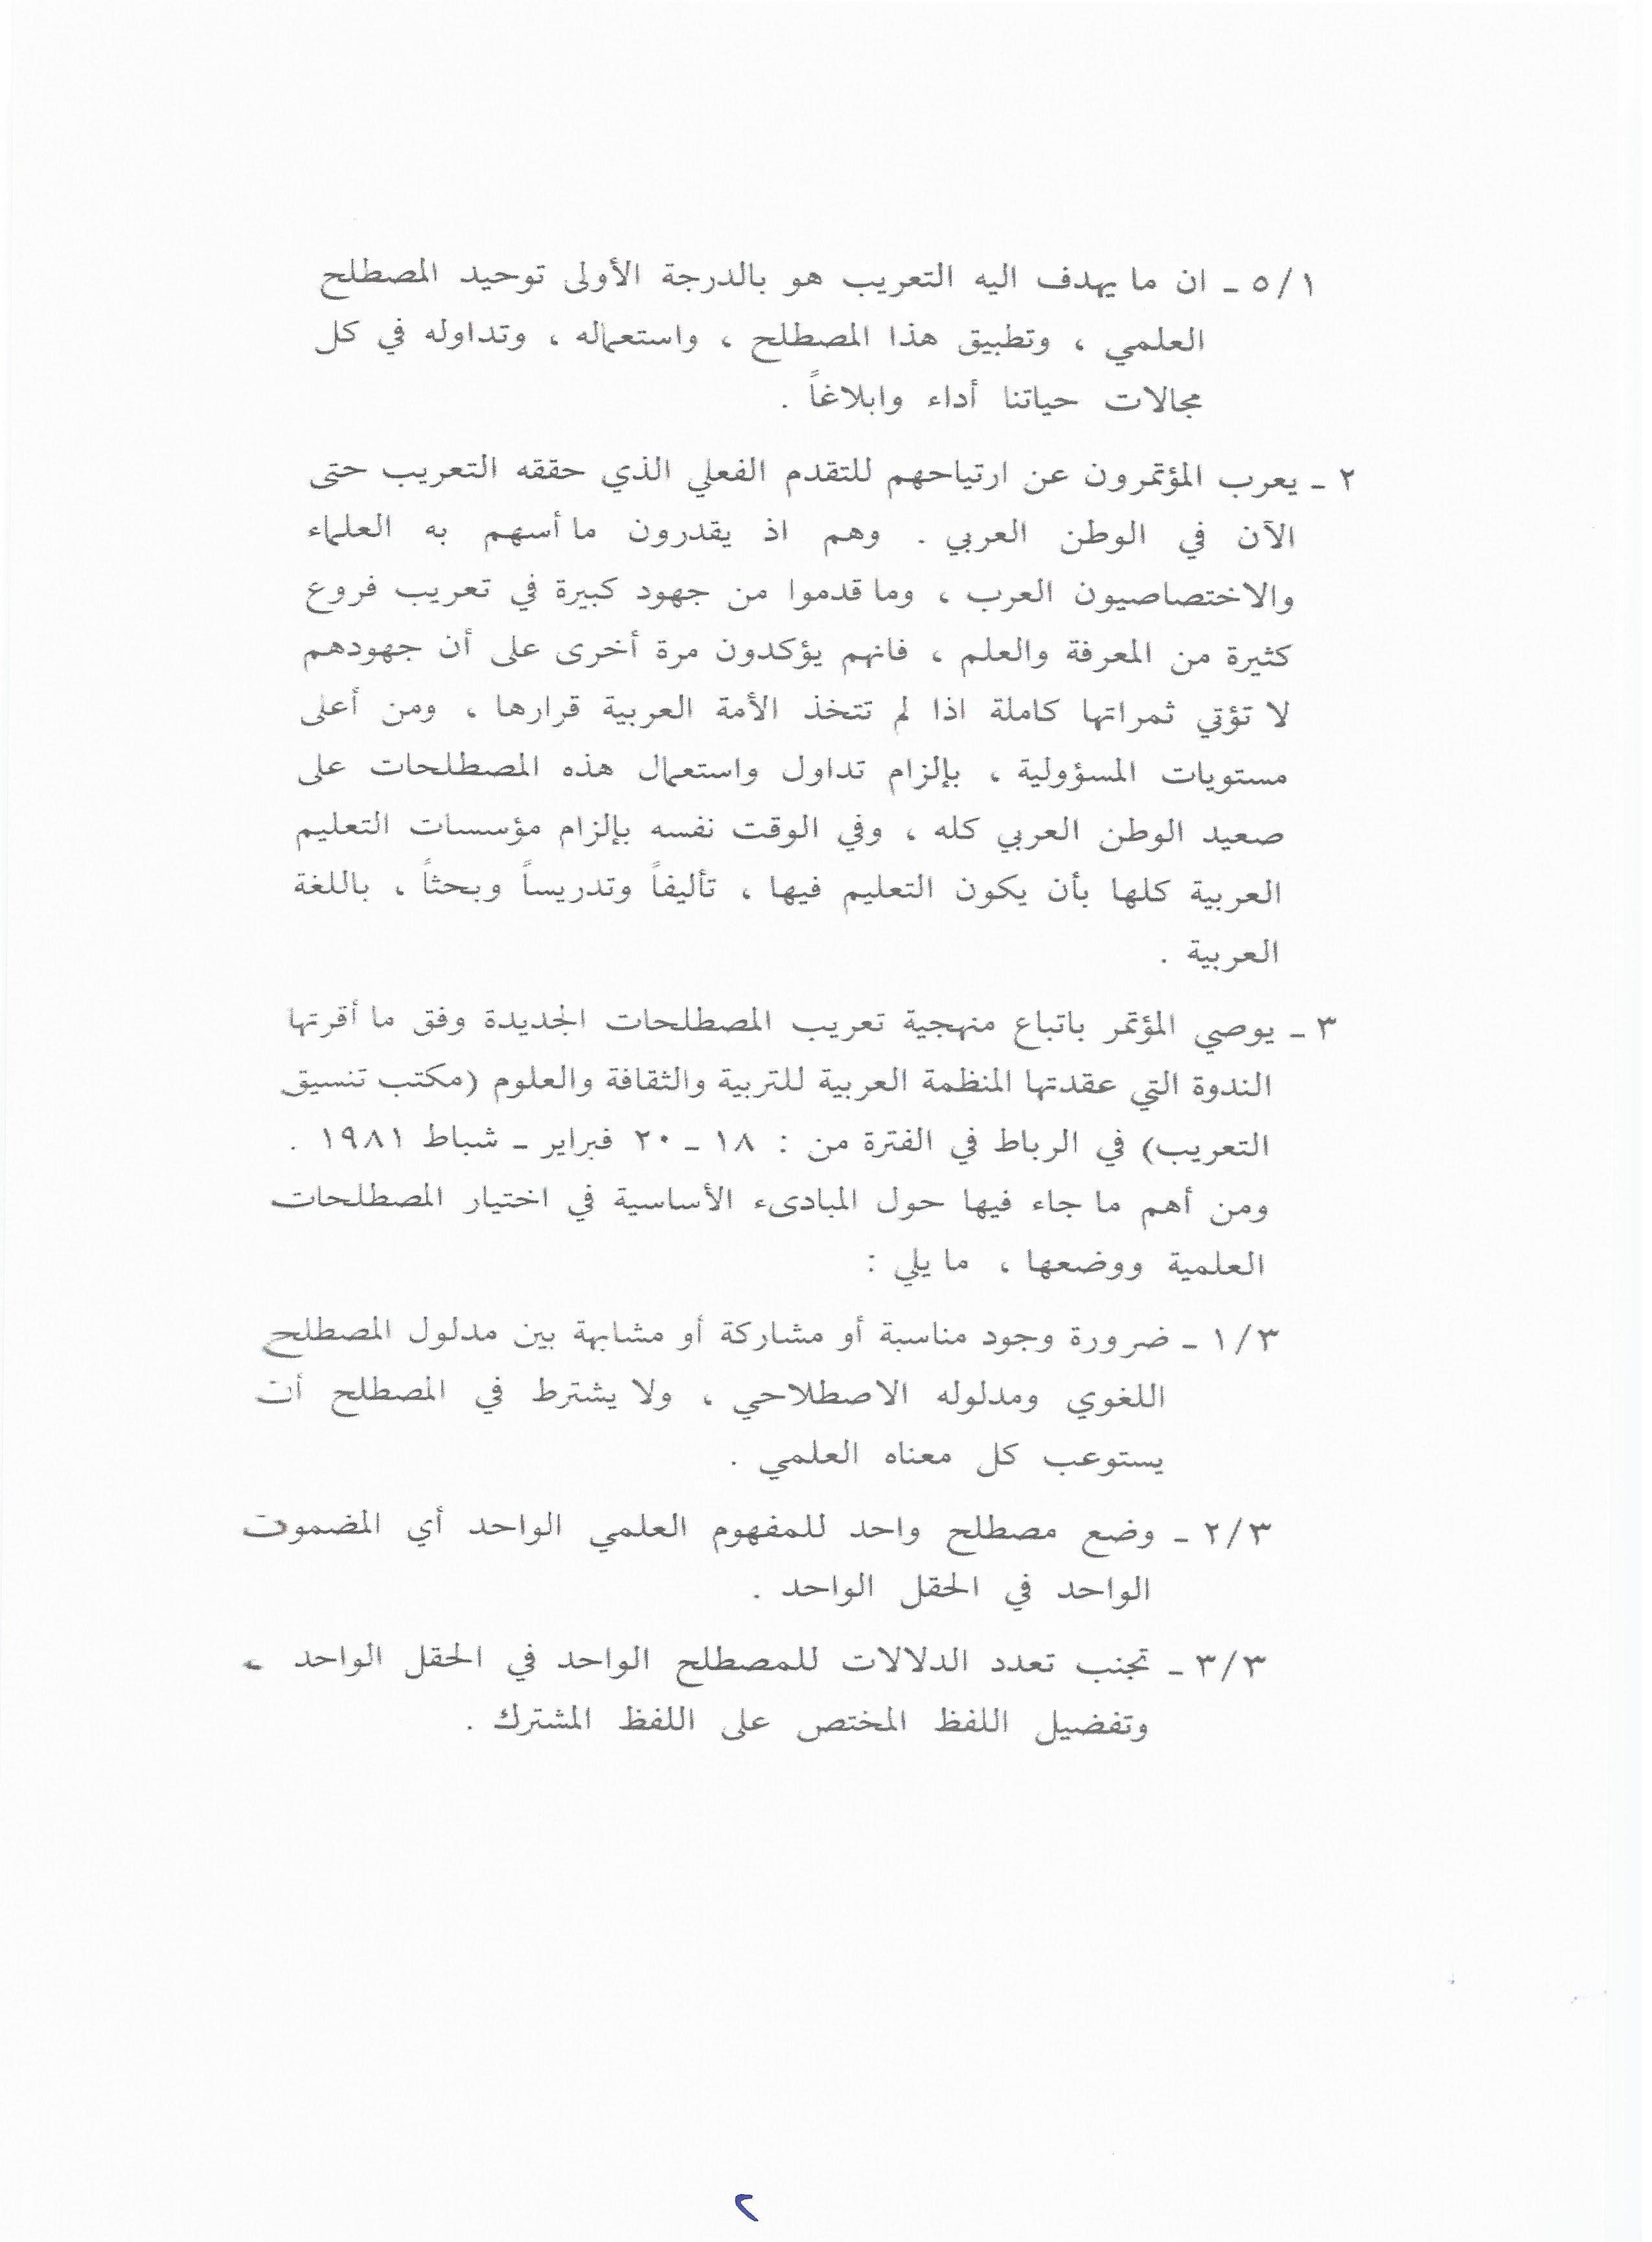 ٥/١ ـ ان ما يهدف اليه التعريب هو بالدرجة الأولى توحيد المصطلح
العلمي ، وتطبيق هذا المصطلح ، واستعماله ، وتداوله في كل
مجالات حياتنا أداء وابلاغاً .
٢ ـ يعرب المؤتمرون عن ارتياحهم للتقدم الفعلي الذي حققه التعريب حتى
الآن في الوطن العربي . وهم اذ يقدرون ما أسهم به العلماء
والاختصاصيون العرب ، وما قدموا من جهود كبيرة في تعريب فروع
كثيرة من المعرفة والعلم ، فانهم يؤكدون مرة أخرى على أن جهودهم
لا تؤتي ثمراتها كاملة اذا لم تتخذ الأمة العربية قرارها ، ومن أعلى
مستويات المسؤولية ، بإلزام تداول واستعمال هذه المصطلحات على
صعيد الوطن العربي كله ، وفي الوقت نفسه بإلزام مؤسسات التعليم
العربية كلها بأن يكون التعليم فيها ، تأليفاً وتدريساً وبحثاً ، باللغة
العربية .
٣ ـ يوصي المؤتمر باتباع منهجية تعريب المصطلحات الجديدة وفق ما أقرتها
الندوة التي عقدتها المنظمة العربية للتربية والثقافة والعلوم (مكتب تنسيق
التعريب) في الرباط في الفترة من : ١٨ ـ ٢٠ فبراير ـ شباط ١٩٨١ .
ومن أهم ما جاء فيها حول المبادىء الأساسية في اختيار المصطلحات
العلمية ووضعها ، ما يلي :
١/٣ ـ ضرورة وجود مناسبة أو مشاركة أو مشابهة بين مدلول المصطلح
اللغوي ومدلوله الاصطلاحي ، ولا يشترط في المصطلح أن
يستوعب كل معناه العلمي .
٢/٣ ـ وضع مصطلح واحد للمفهوم العلمي الواحد أي المضمون
الواحد في الحقل الواحد .
٣/٣ ـ تجنب تعدد الدلالات للمصطلح الواحد في الحقل الواحد ،
وتفضيل اللفظ المختص على اللفظ المشترك .
٢